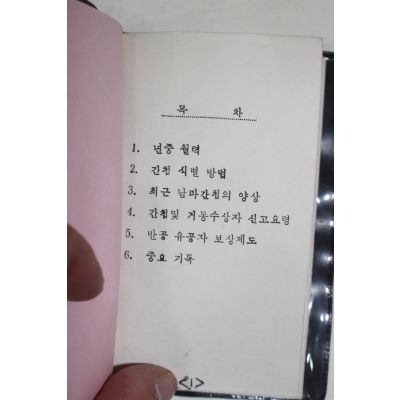 목 차
1. 년중 월력
2. 간첩 식별 방법
3. 최근 남파간첩의 양상
4. 간첩및 거동수상자 신고요령
5. 반공 유공자 보상제도
6. 중요 기록
<1>